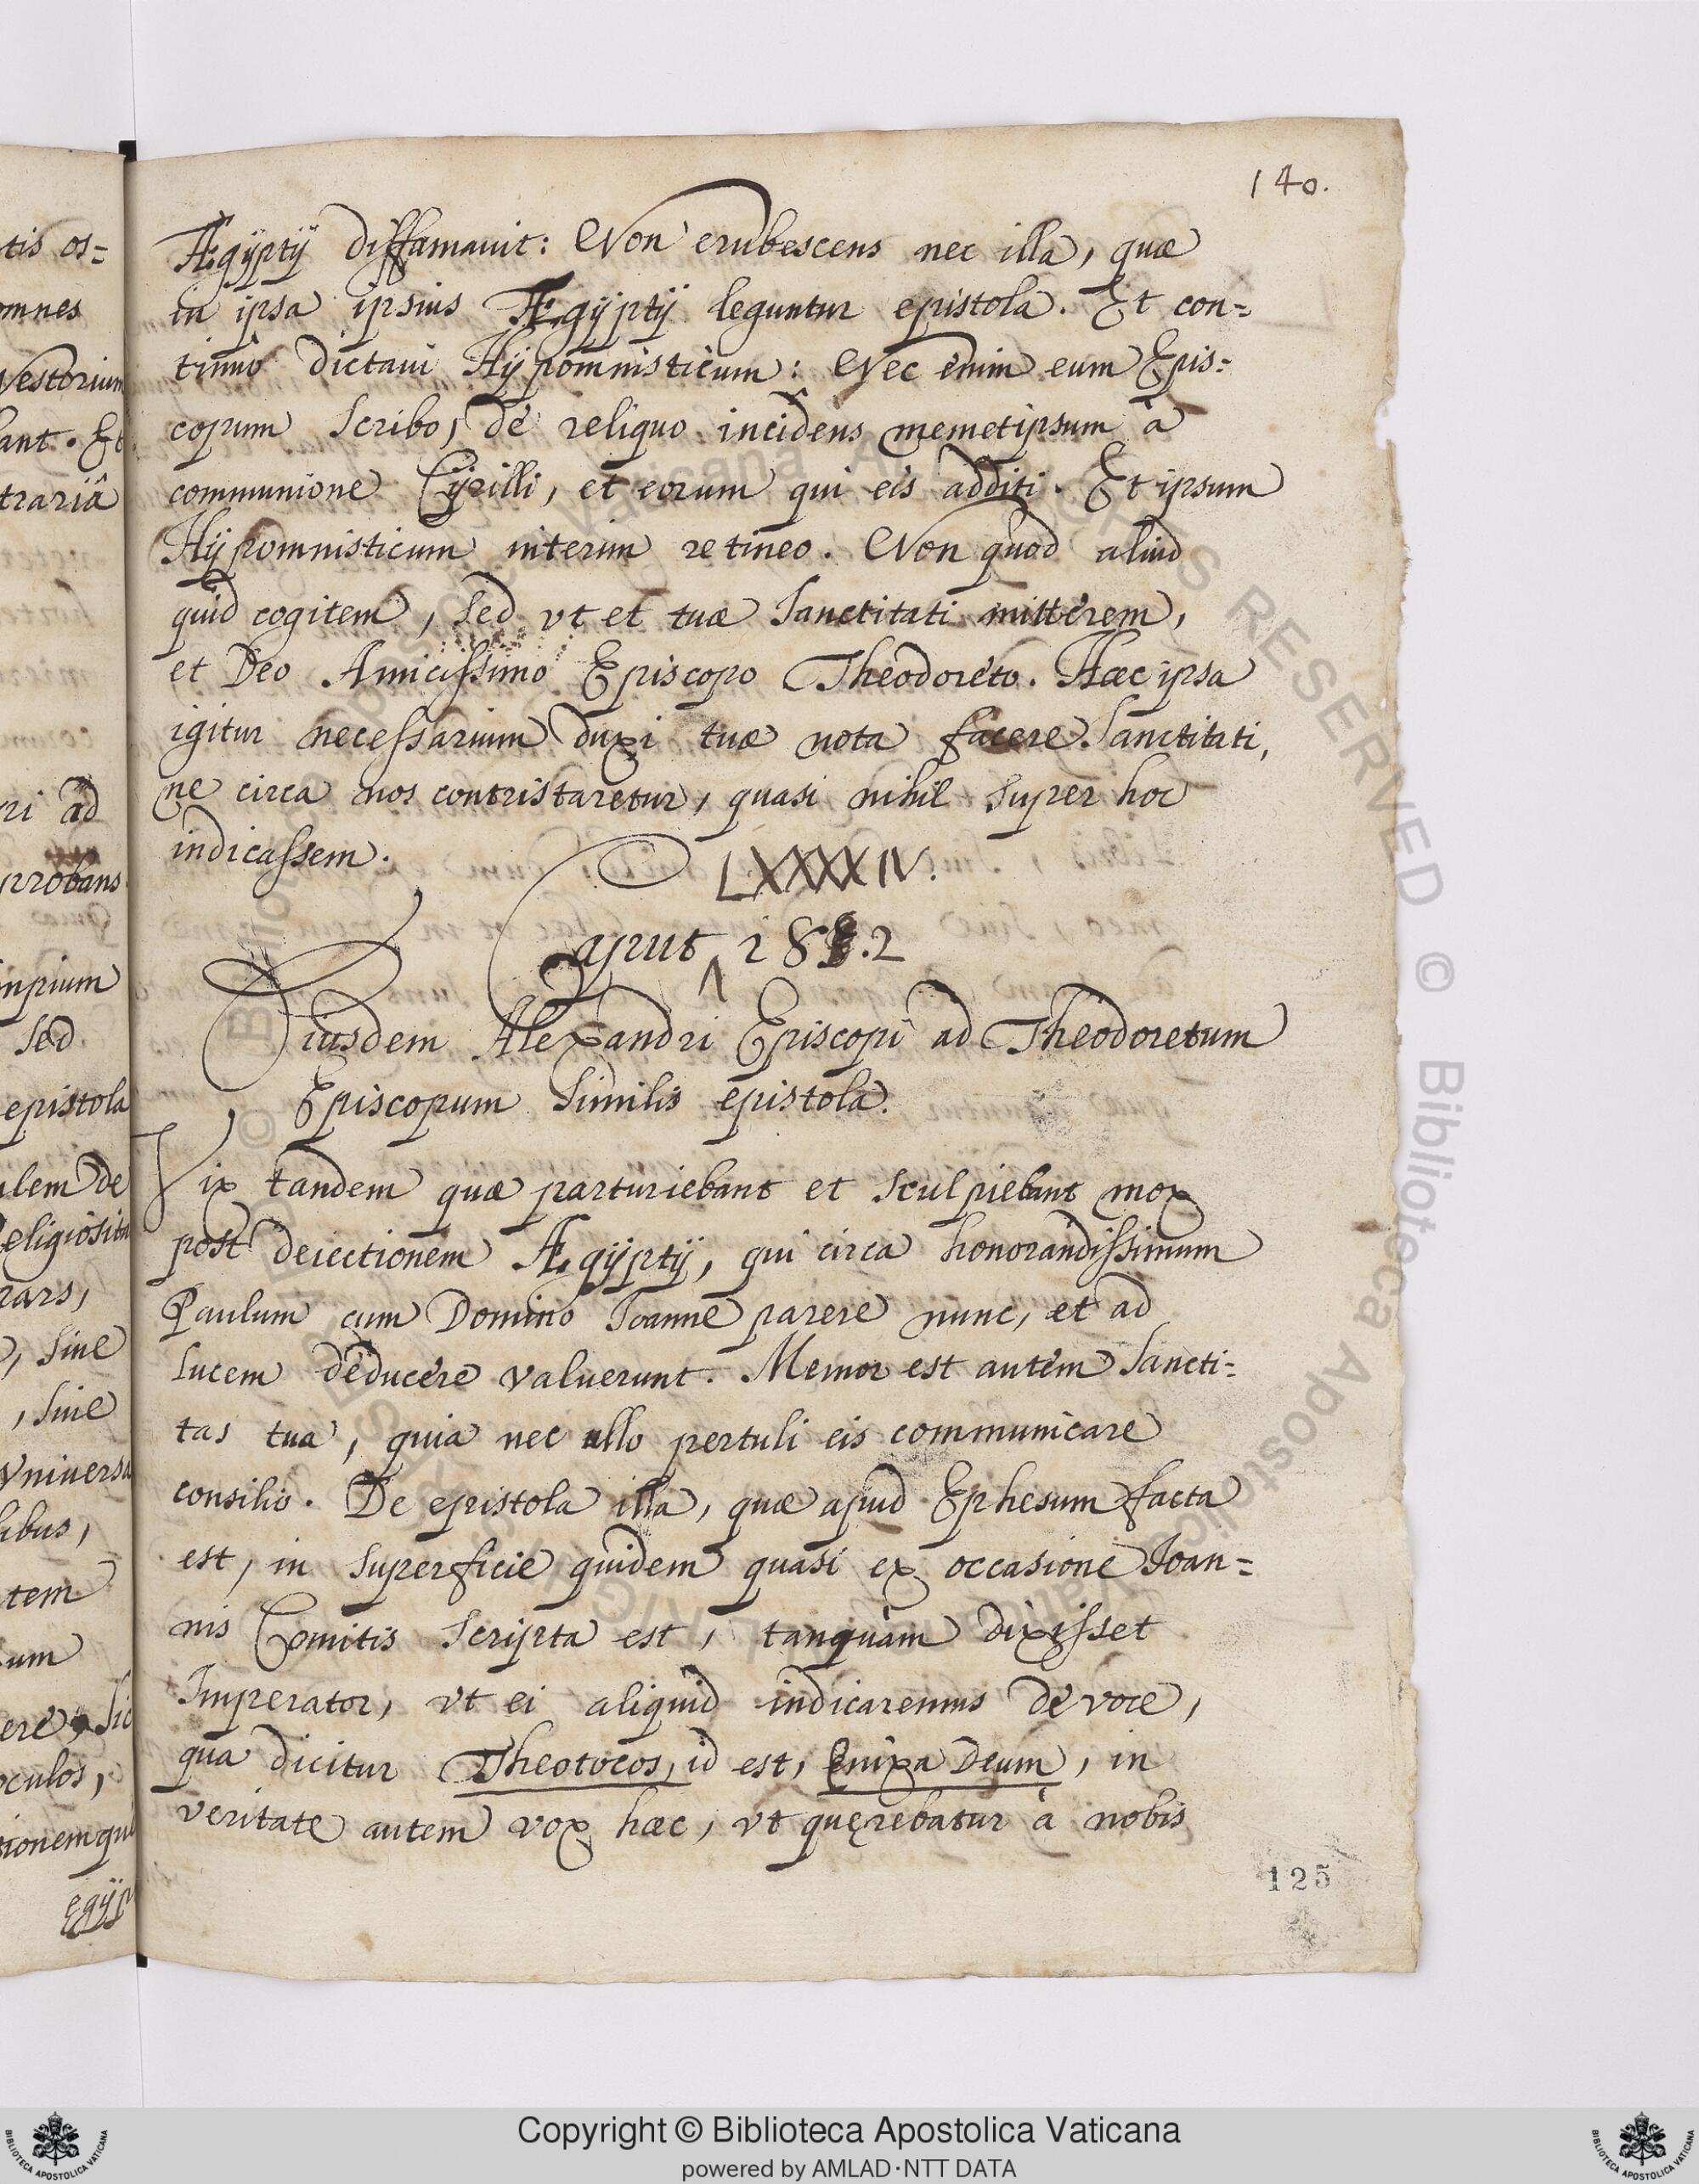 140.
Ægÿptÿ diffamauit: Non erubescens nec illa, quæ
in ipsa ipsius Ægÿptÿ leguntur epistola. Et con=
tinuò dictaui Hÿpomnisticum: Nec enim eum Epis=
copum scribo, de reliquo incidens memetipsum à
communione Cÿrilli, et eorum qui eis additi. Et ipsum
Hÿpomnisticum interim retineo. Non quod aliud
quid cogitem, sed vt et tuæ sanctitati mitterem,
et Deo Amicissimo Episcopo Theodoreto. Hæc ipsa
igitur necessarium duxi tuæ nota facere sanctitati,
ne circa nos contristaretur, quasi nihil super hoc
indicassem.
LXXXXIV.
Caput 18.2
Eiusdem Alexandri Episcopi ad Theodoretum
Episcopum similis epistola.
Vix tandem quæ parturiebant et sculpiebant mox
post deiectionem Ægÿptÿ, qui circa honorandissimum
Paulum cum Domino Ioanne parere nunc, et ad
lucem deducere valuerunt. Memor est autem sancti=
tas tua, quia nec ullo pertuli eis communicare
consilio. De epistola illa, quæ apud Ephesum facta
est, in superficie quidem quasi ex occasione Ioan=
nis Comitis scripta est, tanquàm dixisset
Imperator, vt ei aliquid indicaremus de voce,
qua dicitur Theotocos, id est, Enixa Deum, in
veritate autem vox hæc, vt quęrebatur à nobis
125
tis os=
omnes
Nestorium
ant. Et
trariâ
ri ad
probans
impium
sed
epistola
alem de
religiosita
siue
, siue
Vniversa
tem
oculos,
Copyright © Biblioteca Apostolica Vaticana
powered by AMLAD·NTT DATA